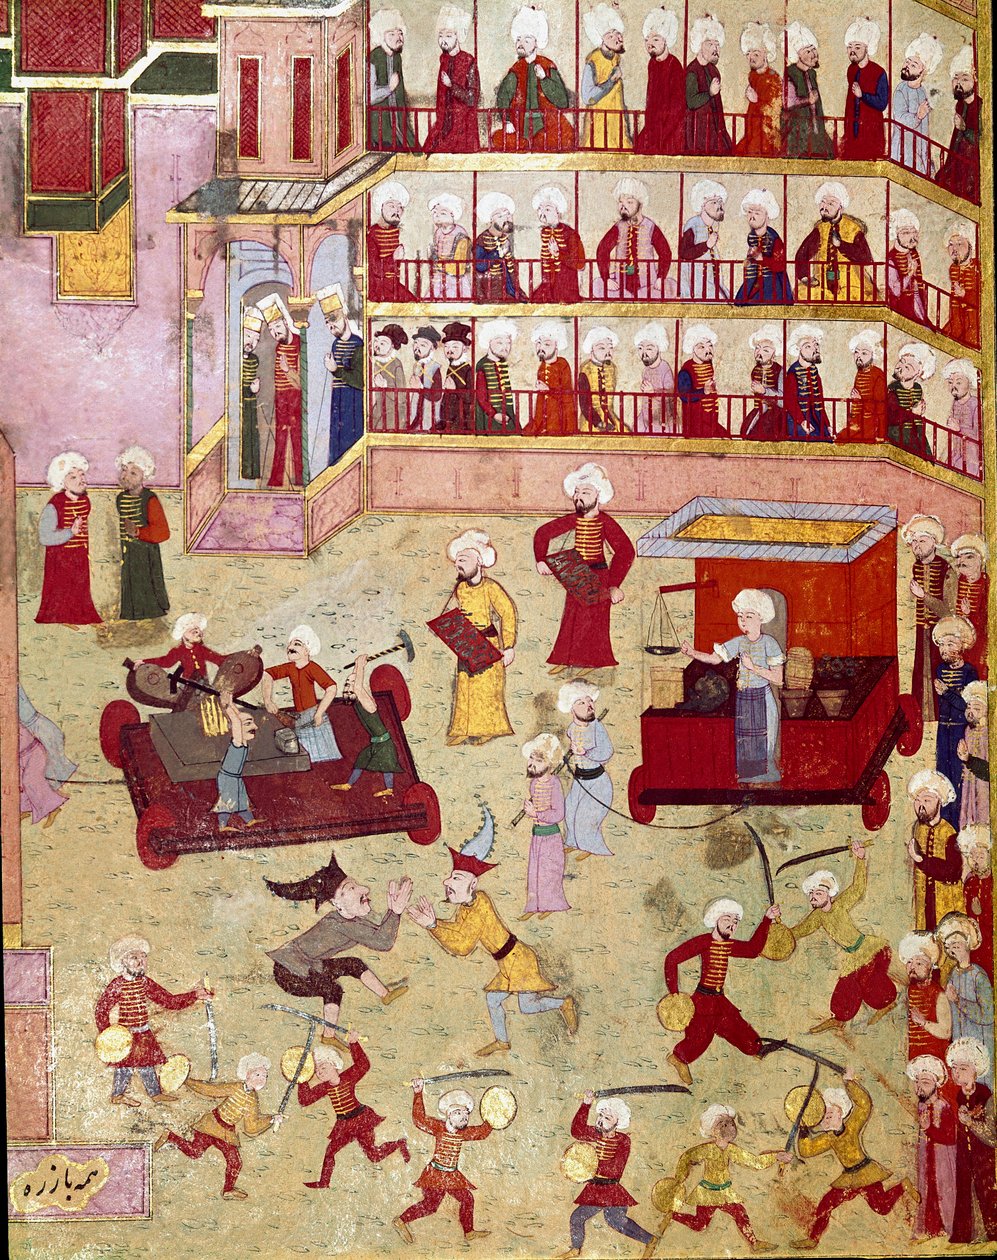 همه بازره